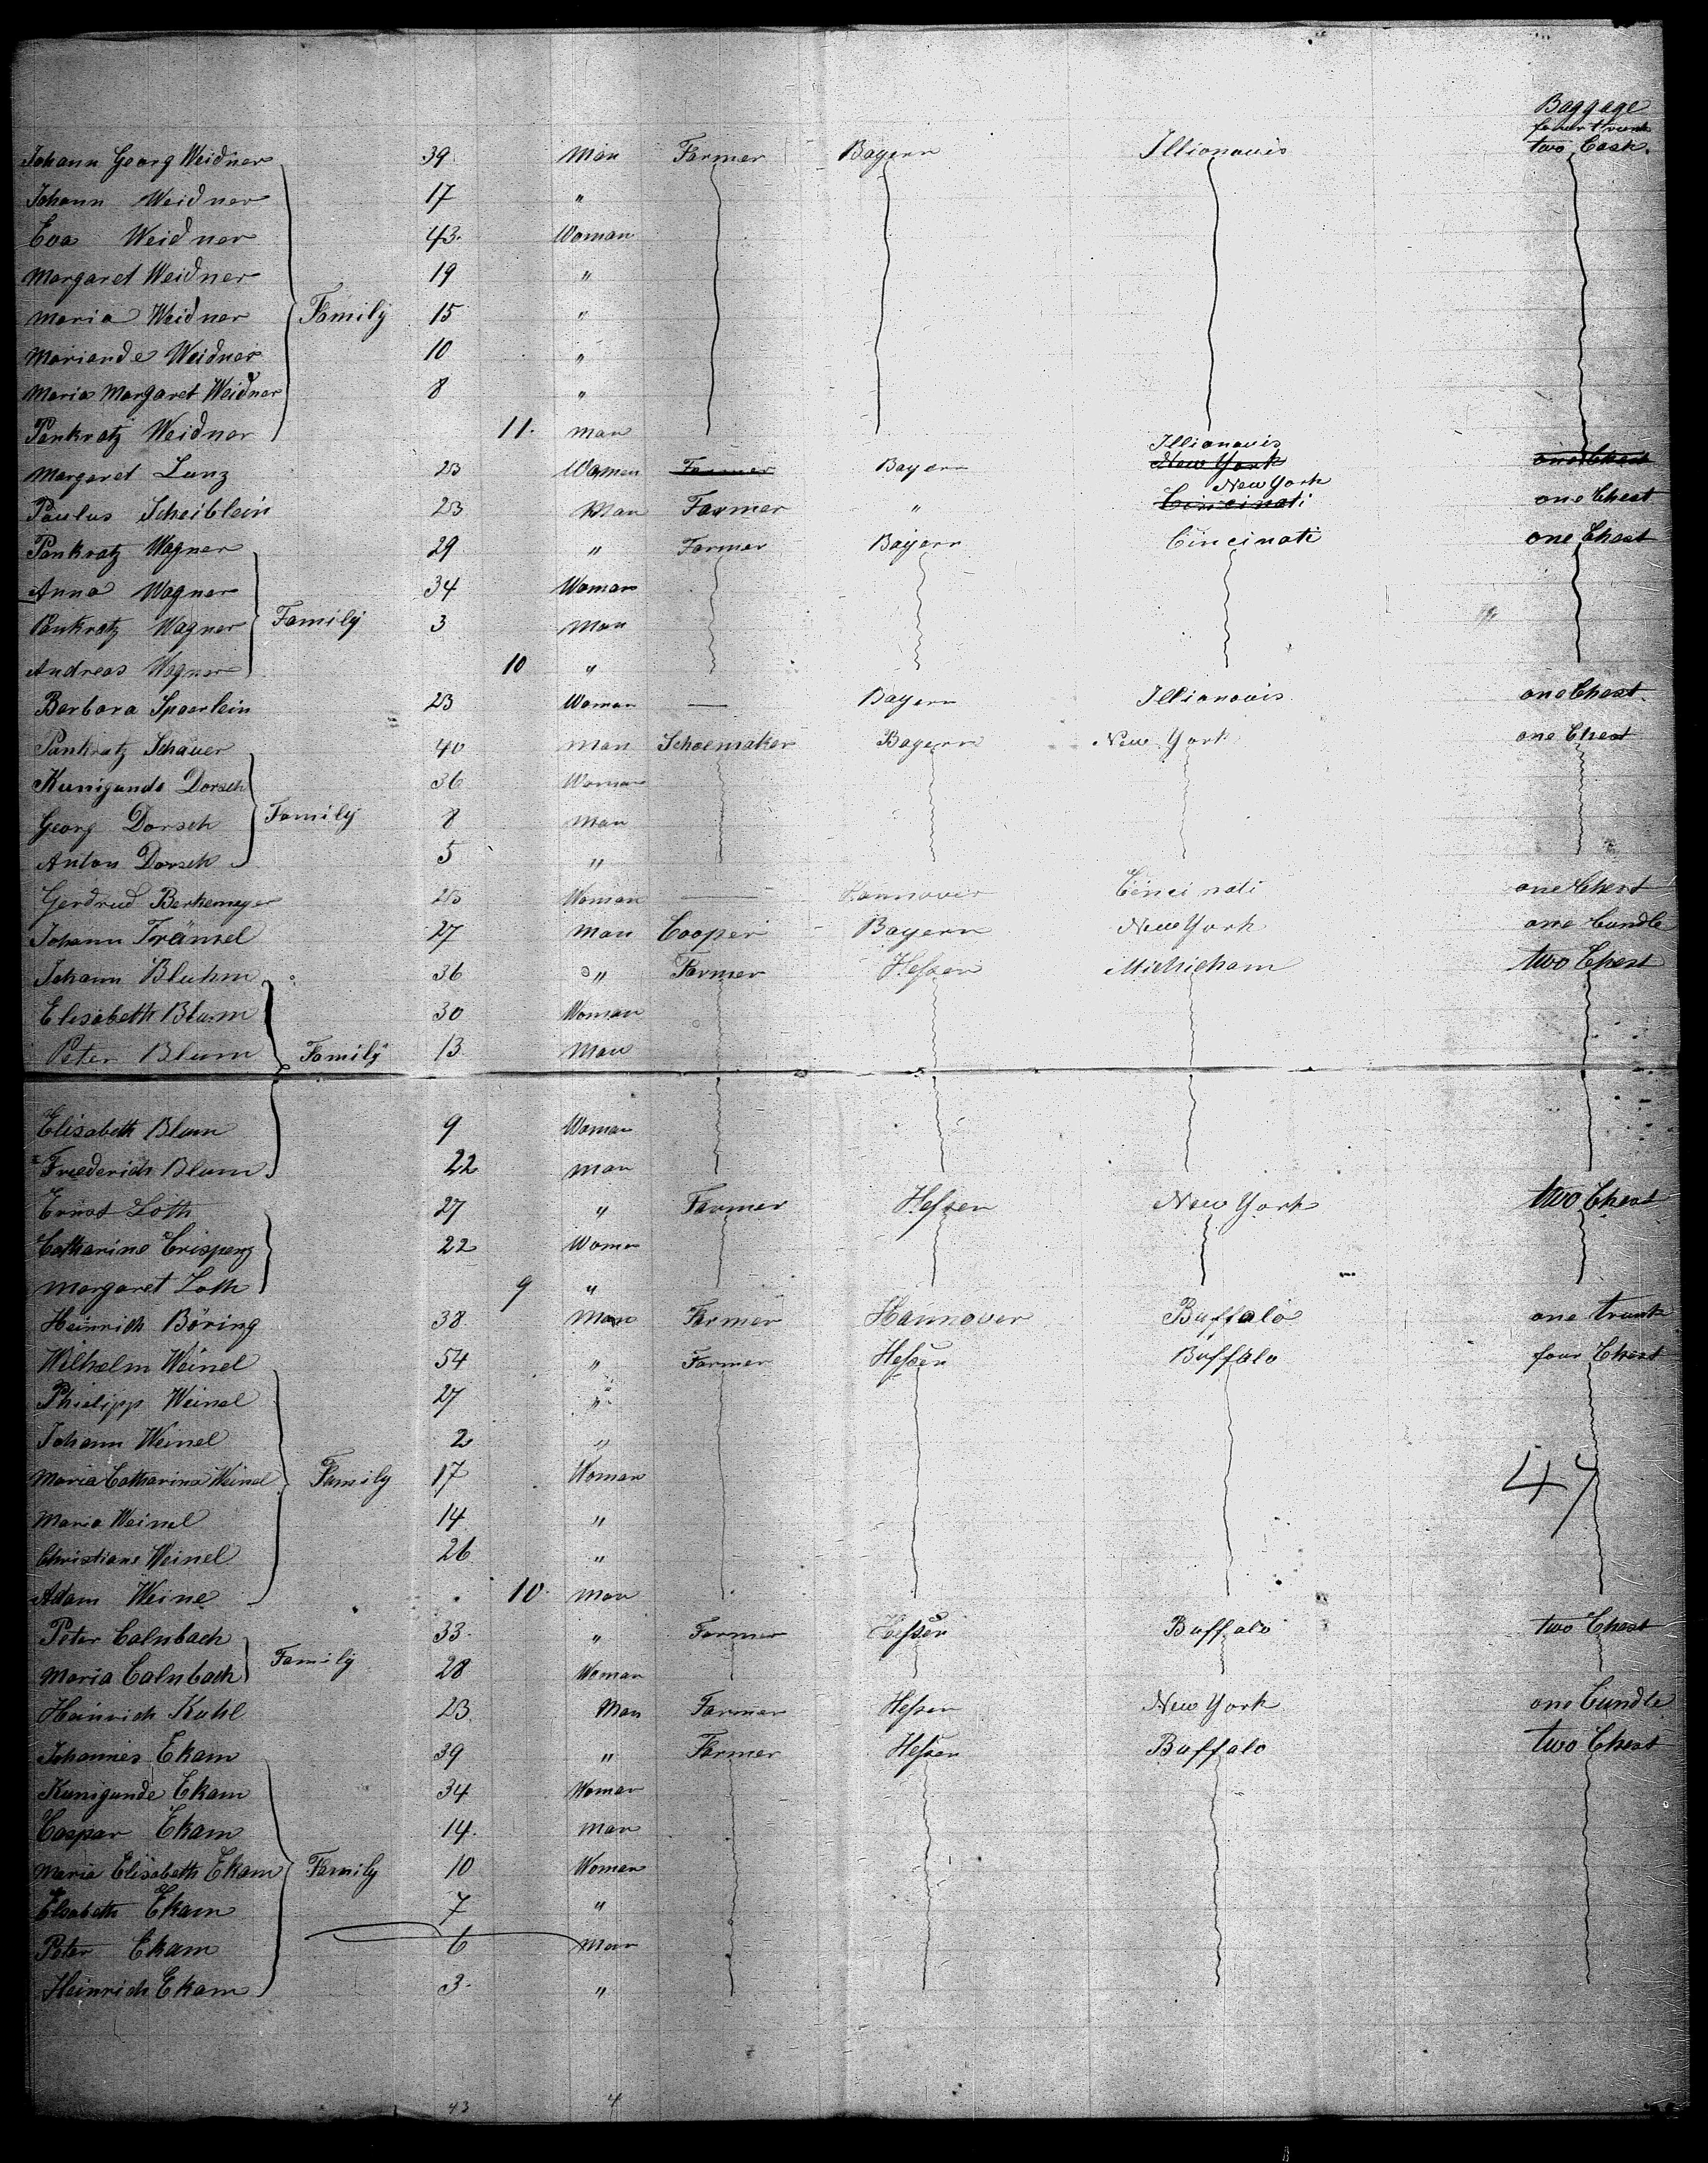 Baggage
four trunk
Johann Georg Weidner 39 Man Farmer Bayern Illionouis two Cask.
Johann Weidner 17 "
Eva Weidner 43. Woman
Margaret Weidner 19 "
Maria Weidner Family 15 "
Mariande Weidner 10 "
Maria Margaret Weidner 8 "
Pankratz Weidner 11. man
Illionouis
Margaret Lunz 23 Woman Farmer Bayern New York one Chest
New York
Paulus Scheiblein 23 Man Farmer " Cincinati one Chest
Pankratz Wagner 29 " Farmer Bayern Cincinati one Chest
Anna Wagner 34 Woman
Pankratz Wagner Family 3 Man
Andreas Wagner 10 "
Barbara Spaerlein 23 Woman — Bayern Illianouis one Chest
Pankratz Schauer 40 man Schoemaker Bayern New York one Chest
Kunigunde Dorsch 36 Woman
Georg Dorsch Family 8 Man
Anton Dorsch 5 "
Gerdrud Berkemeyer Woman — Hannover Cincinati one Chest
Johann Främel 27 Man Cooper Bayern New York one bundle
Johann Bluhm 36 " Farmer Hessen Michicham two Chest
Elisabeth Blum 30 Woman
Peter Blum Family 13 Man
Elisabeth Blum 9 Woman
Friederich Blum 22 man
Ernst Loth 27 " Farmer Hessen New York two Chest
Catharine Crispenz 22 Woman
Margaret Loth 9 "
Heinrich Böring 38 Man Farmer Hannover Buffalo one trunk
Wilhelm Weinel 54 " Farmer Hessen Buffalo four Chest
Philipp Weinel 27 "
Johann Weinel 2 "
Maria Catharina Weinel Family 17 Woman 47
Maria Weinel 14 "
Christiane Weinel 26 "
Adam Weine 10. Man
Peter Calnbach 33. " Farmer Hessen Buffalo two Chest
Maria Calnbach Family 28 Woman
Heinrich Kuhl 23 Man Farmer Hessen New York one bundle
Johannes Ekam 39 " Farmer Hessen Buffalo two Chest
Kunigunde Ekam 34 Woman
Caspar Ekam 14. Man
Maria Elisabeth Ekam Family 10 Woman
Elsabeth Ekam 7 "
Peter Ekam 6 Man
Heinrich Ekam 3. "
43 4